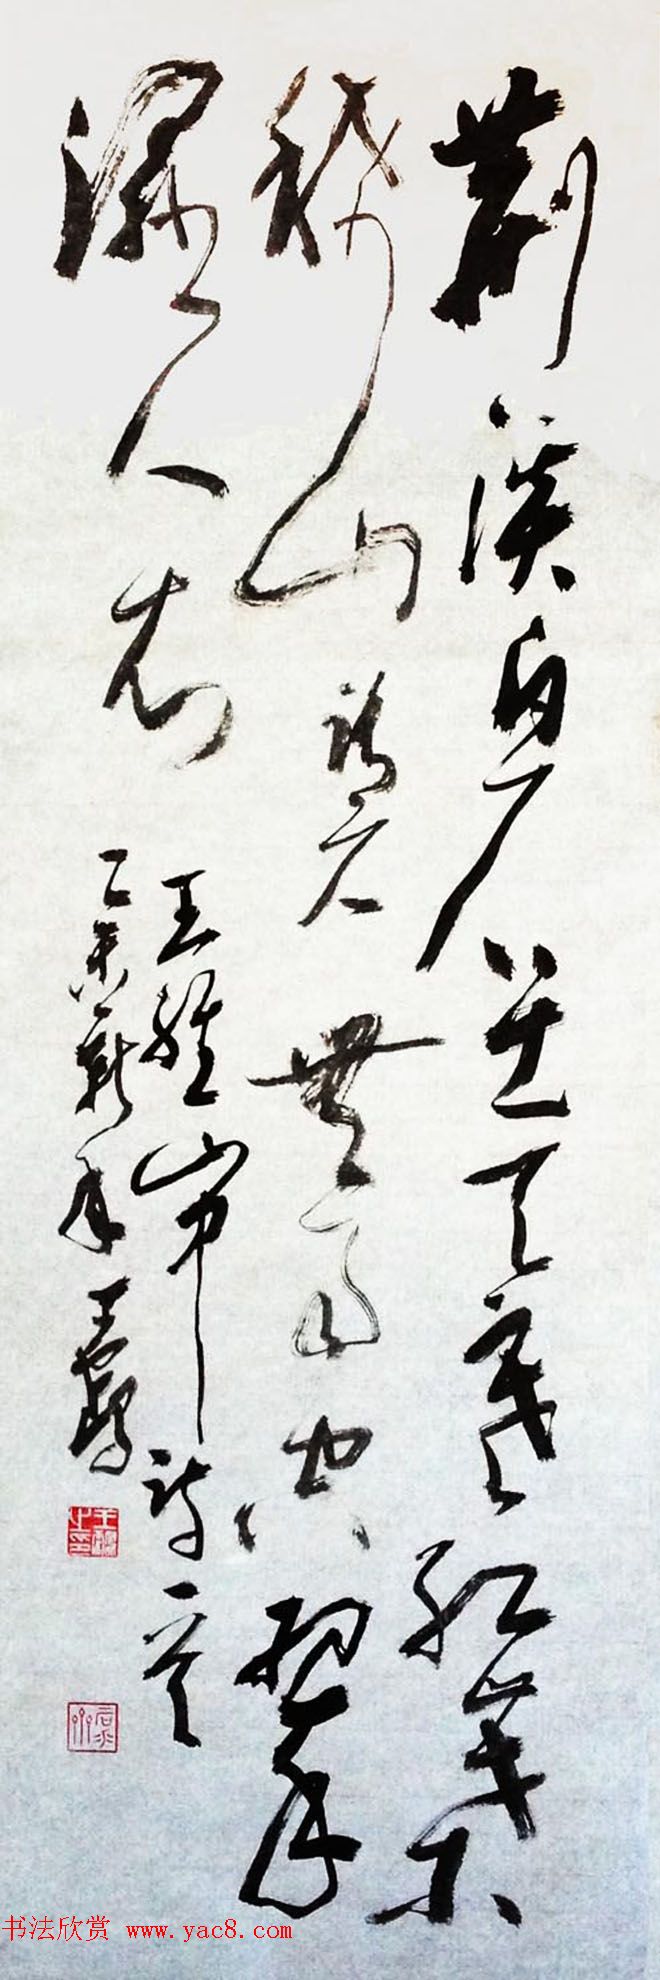 荊溪白石出天寒紅葉
稀山路元無雨空翠
濕人衣
王維山中詩一首
乙未新年王
书法欣赏 www.yac8.com